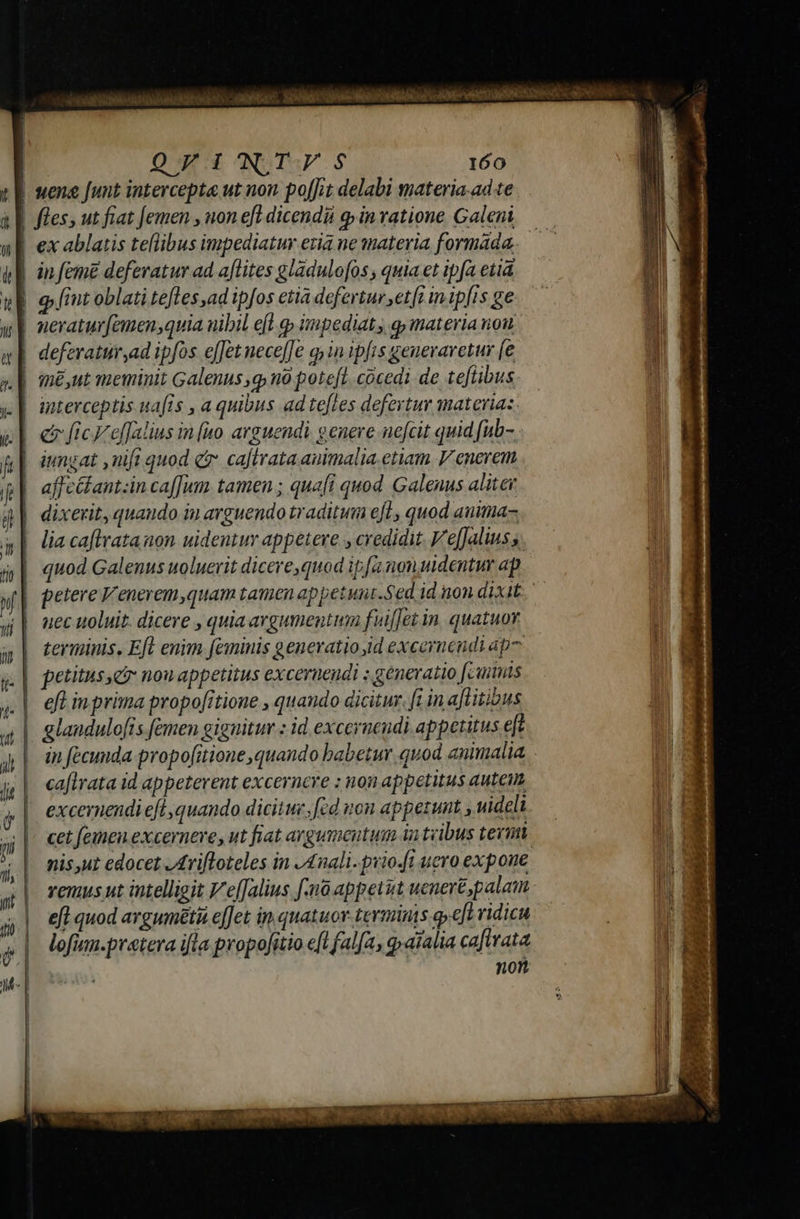 QVINTVS 160
uenę ſunt intercepta ut non poſſit delabi materia ad te
ſtes, ut fiat ſemen, non eſt dicendū ꝙ in ratione Galeni
ex ablatis teſtibus impediatur etiā ne materia formāda
in ſemē deferatur ad aſtites glādulofos, quia et ipſa etiā
ꝙ ſint oblati teſtes, ad ipſos etiā defertur, et ſi in ipſis ge
neratur ſemen, quia nihil eſt ꝙ impediat, ꝙ materia non
deferatur, ad ipſos eſſet neceſſe ꝙ in ipſis generaretur ſe
mē, ut meminit Galenus, ꝙ nō poteſt cōcedi de teſtibus
interceptis uaſis, a quibus ad teſtes defertur materia:
& ſic Veſſalius in ſuo arguendi genere neſcit quid ſub-
iungat, niſi quod & caſtrata animalia etiam Venerem
affectant: in caſſum tamen; quaſi quod Galenus aliter
dixerit, quando in arguendo traditum eſt, quod anima-
lia caſtrata non uidentur appetere, credidit Veſſalius,
quod Galenus uoluerit dicere, quod ipſa non uidentur ap
petere Venerem, quam tamen appetunt. Sed id non dixit
nec uoluit dicere, quia argumentum fuiſſet in quatuor
terminis. Eſt enim ſeminis generatio, id excernendi ap-
petitus, & non appetitus excernendi: generatio ſeminis
eſt in prima propoſitione, quando dicitur. ſi in aſtitibus
glanduloſis ſemen gignitur: id excernendi appetitus eſt
in ſecunda propoſitione, quando habetur quod animalia
caſtrata id appeterent excernere: non appetitus autem
excernendi eſt, quando dicitur, ſed non appetunt, uideli
cet ſemen excernere, ut fiat argumentum in tribus termi
nis, ut edocet Ariſtoteles in Anali. prio. ſi uero expone
remus ut intelligit Veſſalius ſ. nō appetūt uenerē, palam
eſt quod argumētū eſſet in quatuor terminis ꝙ eſt ridicu
loſum. prætera iſta propoſitio eſt falſa, ꝙ aīalia caſtrata
non